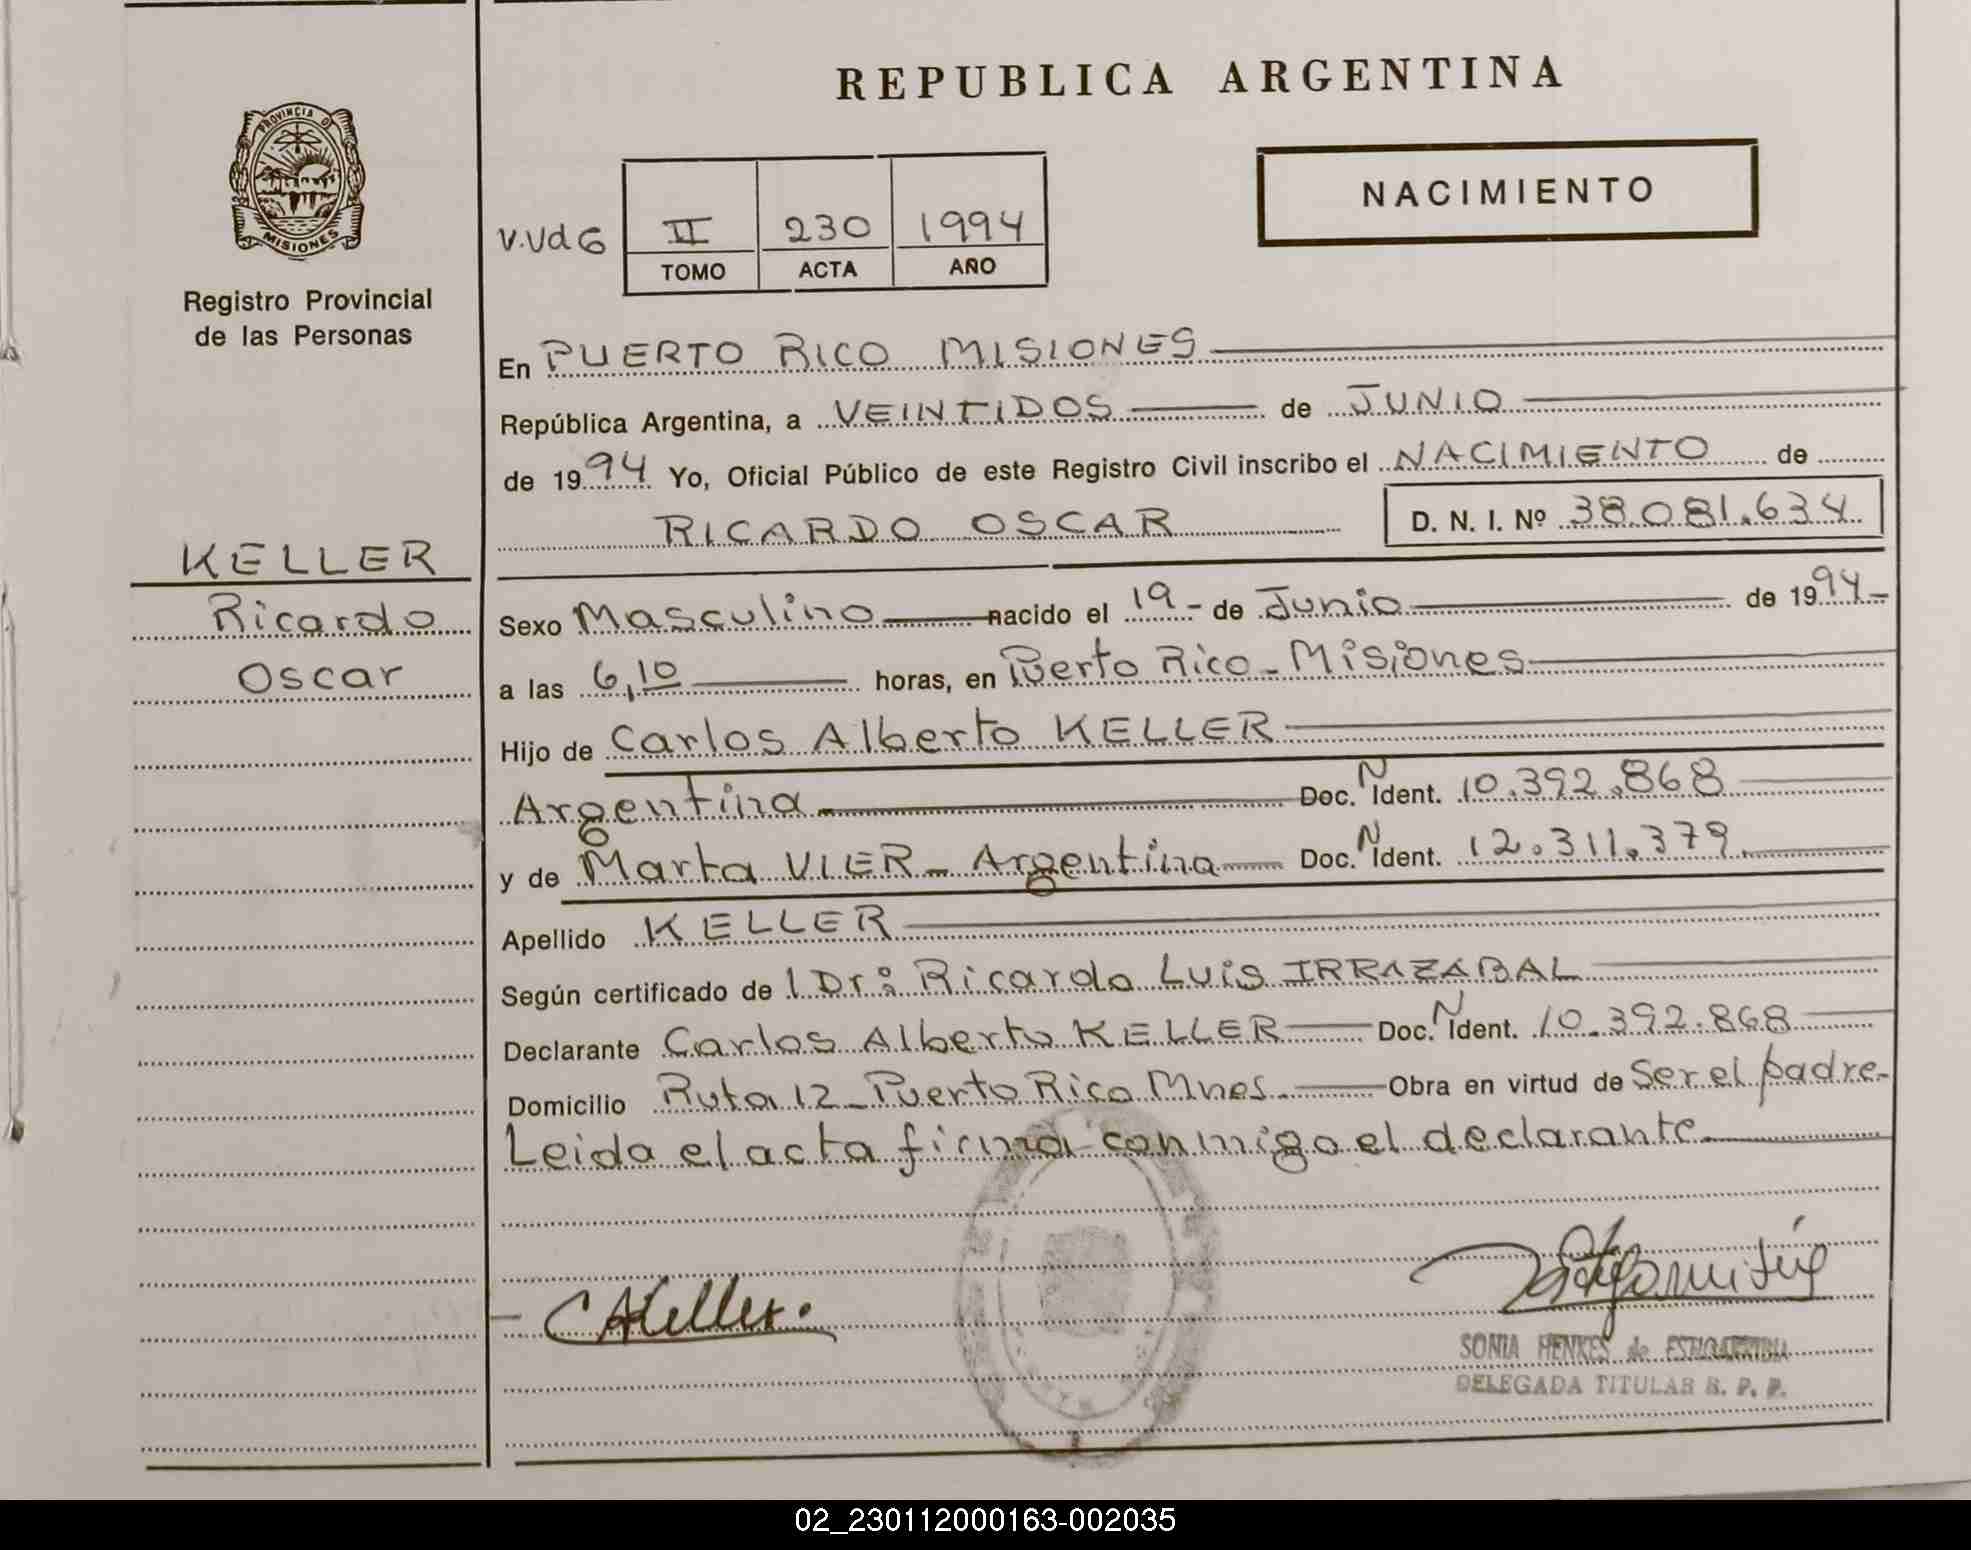 REPUBLICA ARGENTINA
PROVINCIA D
MISIONES
Registro Provincial
de las Personas
V.Vd6
II 230 1994
TOMO ACTA AÑO
NACIMIENTO
En PUERTO RICO MISIONES
República Argentina, a VEINTIDOS de JUNIO
de 1994 Yo, Oficial Público de este Registro Civil inscribo el NACIMIENTO de
RICARDO OSCAR D. N. I. Nº 38.081.634
KELLER
Ricardo
Oscar
Sexo Masculino nacido el 19 - de Junio de 1994 -
a las 6,10 horas, en Puerto Rico - Misiones
Hijo de Carlos Alberto KELLER
Argentina Doc. N Ident. 10.392.868
y de Marta VIER - Argentina Doc. N Ident. 12.311.379.
Apellido KELLER
Según certificado de l Dr: Ricardo Luis IRRAZABAL
Declarante Carlos Alberto KELLER Doc. N Ident. 10.392.868
Domicilio Ruta 12 - Puerto Rico Mnes. Obra en virtud de Ser el padre -
Leida el acta firma conmigo el declarante
CAKeller.
SONIA HENKES de
DELEGADA TITULAR R. P. P.
02_230112000163-002035